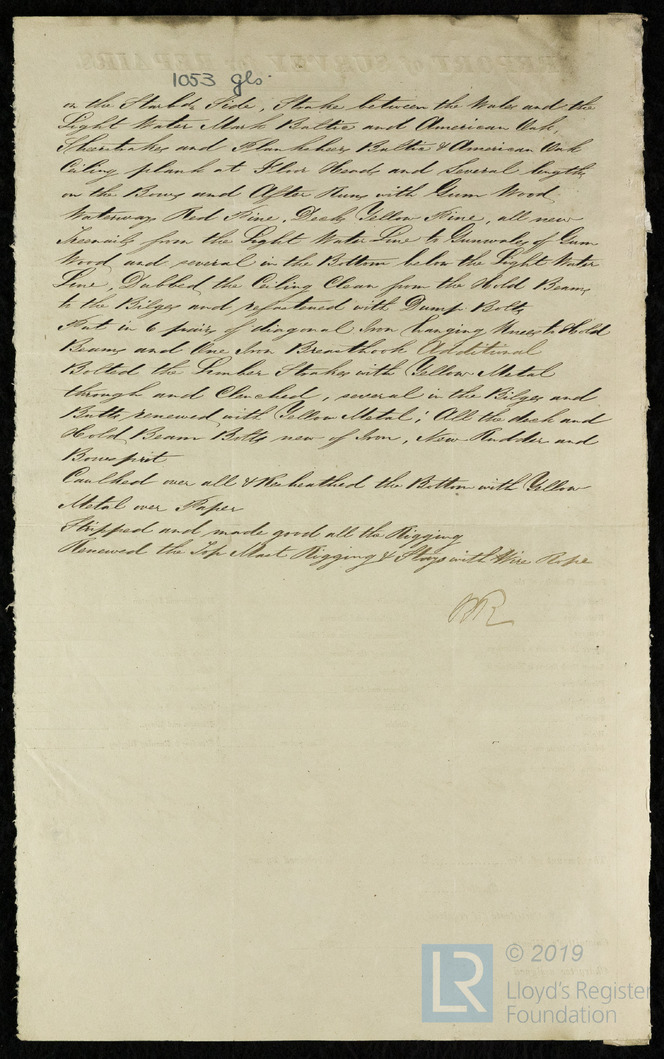 REPORT of SURVEY for REPAIRS.
1053 gls.
on the Starbd Side, Strake between the Wales and the
Light Water Mark Baltic and American Oak,
Sheerstrakes and Plansheers Baltic & American Oak
Ceiling plank at Floor Heads and Several lengths
on the Bows and After Runs with Gum Wood,
Waterways Red Pine, Deck Yellow Pine, all new
Treenails from the Light Water Line to Gunwales of Gum
Wood and several in the Bottom below the Light Water
Line, Dubbed the Ceiling Clean from the Hold Beams
to the Bilges and refastened with Dump Bolts
Put in 6 pairs of diagonal Iron hanging Knees to Hold
Beams and One Iron Breasthook Additional
Bolted the Limber Strakes with Yellow Metal
through and Clenched, several in the Bilges and
Butts renewed with Yellow Metal; All the deck and
Hold Beam Bolts new of Iron, New Rudder and
Bowsprit
Caulked over all & Resheathed the Bottom with Yellow
Metal over Paper
Stripped and made good all the Rigging
Renewed the Top Mast Rigging & Stays with Wire Rope
BR
LR
© 2019
Lloyd's Register
Foundation